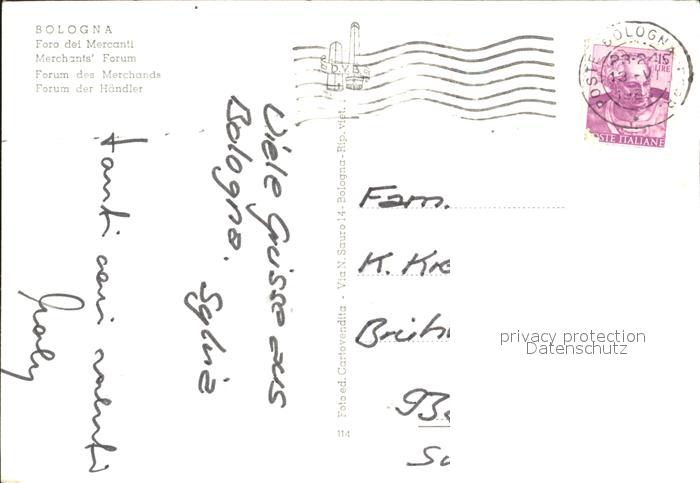 BOLOGNA
Foro dei Mercanti
Merchants' Forum
Forum des Merchands
Forum der Händler
Viele Grüsse aus
Bologna.
Sylvia
tanti cari saluti
Fotoed. Cartovendita - Via N. Sauro 14 - Bologna - Rip. viet.
114
POSTE BOLOGNA
15
LIRE
POSTE ITALIANE
Fam.
K. Kre
93
privacy protection
Datenschutz